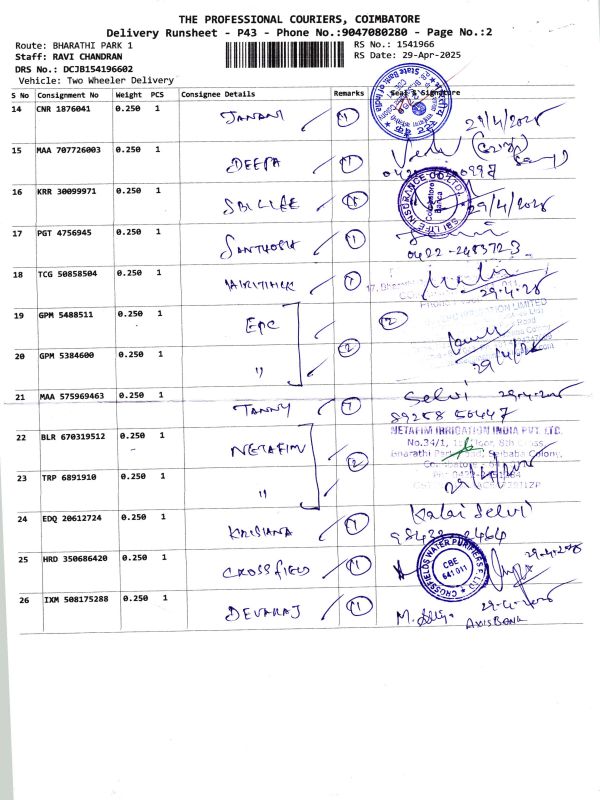 THE PROFESSIONAL COURIERS, COIMBATORE
Delivery Runsheet - P43 - Phone No.:9047080280 - Page No.:2
Route: BHARATHI PARK 1 RS No.: 1541966
Staff: RAVI CHANDRAN RS Date: 29-Apr-2025
DRS No.: DCJB154196602
Vehicle: Two Wheeler Delivery
S No Consignment No Weight PCS Consignee Details Remarks Seal & Signature
14 CNR 1876041 0.250 1 JANANI 1 29/4/2025
15 MAA 707726003 0.250 1 DEEPA 1
16 KRR 30099971 0.250 1 SBI LIFE 1 SBI LIFE INSURANCE CO LTD Coimbatore Banca 29/4/2025
17 PGT 4756945 0.250 1 SANTHOSH 1 0422-2483723
18 TCG 50858504 0.250 1 1 29-4-25
19 GPM 5488511 0.250 1 EPC 2
20 GPM 5384600 0.250 1 " 2 29/4/25
21 MAA 575969463 0.250 1 TANNY 1 Selvi 29-4-2025
89258 50447
22 BLR 670319512 0.250 1 NETAFIM NETAFIM IRRIGATION INDIA PVT. LTD.
No.34/1,
Saibaba Colony,
23 TRP 6891910 0.250 1 " 2 29/4/2025
24 EDQ 20612724 0.250 1 KRISHNA 1 Kalai Selvi
25 HRD 350686420 0.250 1 CROSSFIELD 1 CROSSFIELDS WATER PURIFIERS P LTD CBE 641 011 29-4-2025
26 IXM 508175288 0.250 1 DEVARAJ 1 29-4-2025
AXIS BANK